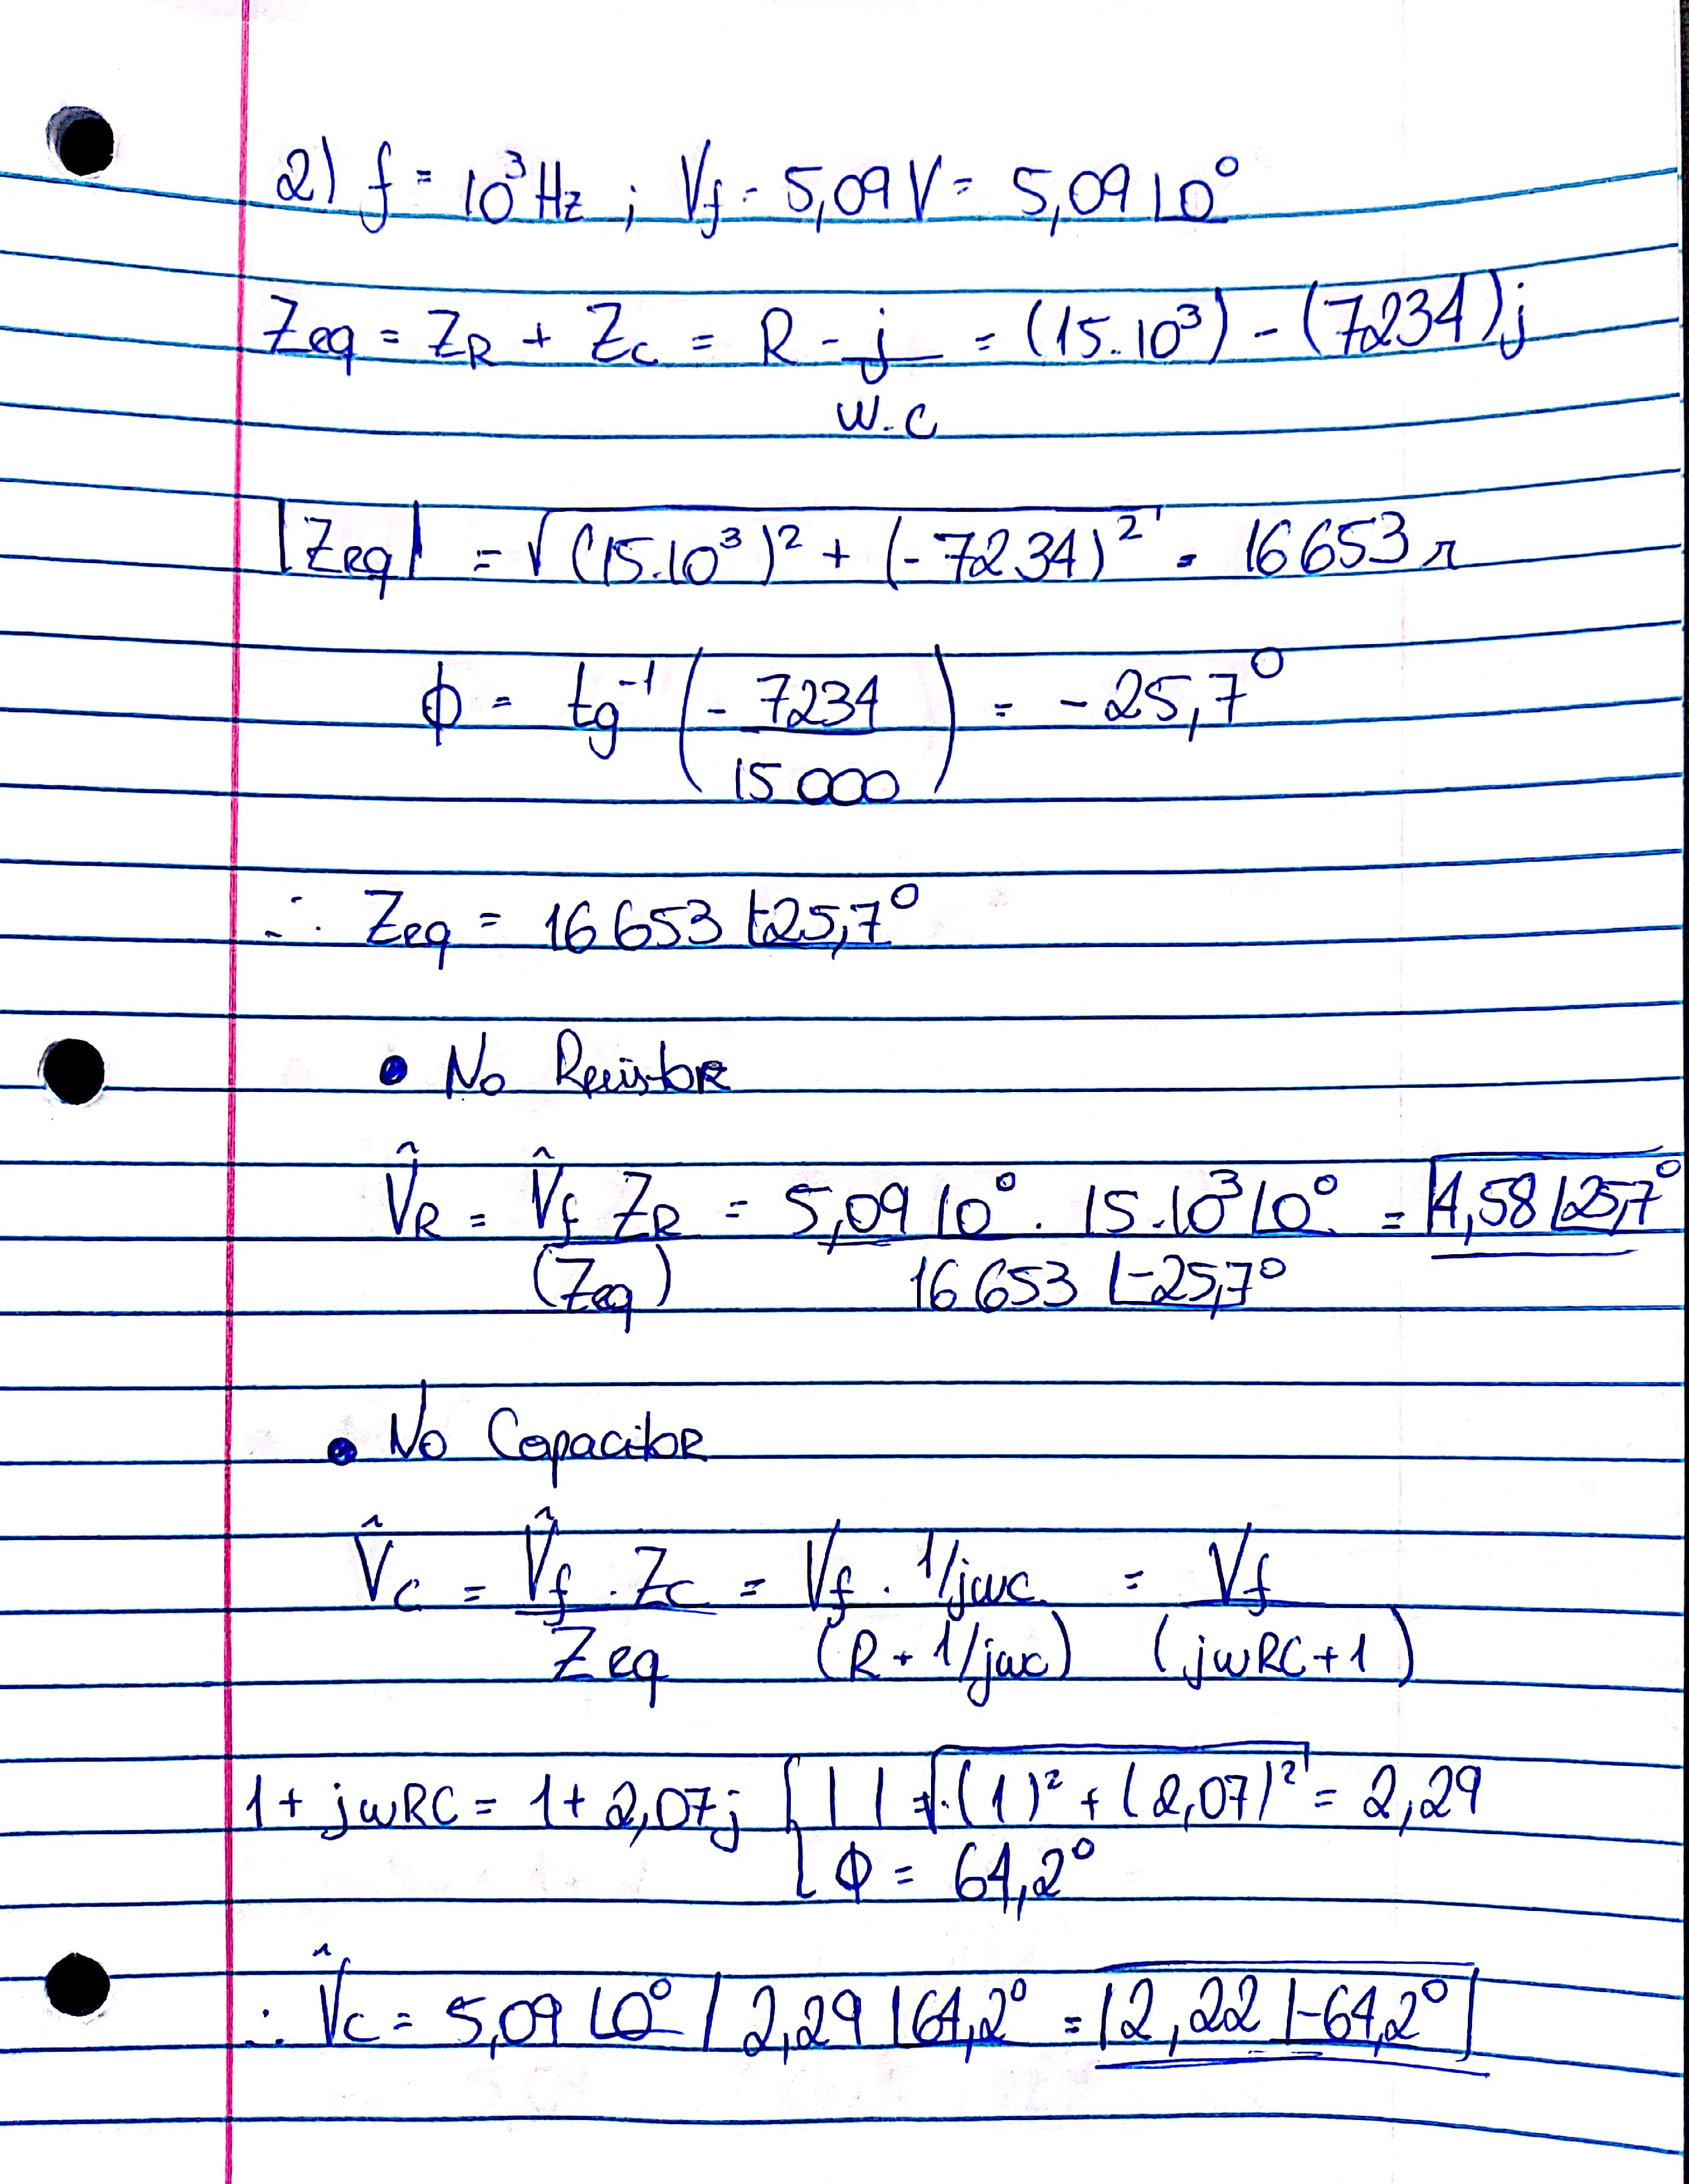 2) f = 10³ Hz ; Vf = 5,09 V = 5,09 ∠0°
Zeq = ZR + ZC = R - j = (15.10³) - (7234)j
w.c
|Zeq| = √(15.10³)² + (-7234)² = 16653 Ω
ϕ = tg⁻¹ (- 7234 / 15000) = -25,7°
∴ Zeq = 16653 ∠-25,7°
• No Resistor
V̂R = V̂f ZR = 5,09 ∠0° . 15.10³ ∠0° = 4,58 ∠25,7°
(Zeq) 16653 ∠-25,7°
• No Capacitor
V̂C = V̂f . ZC = Vf . 1/jwc = Vf
Zeq (R + 1/jwc) (jwRC + 1)
1 + jwRC = 1 + 2,07j { | | = √(1)² + (2,07)² = 2,29
ϕ = 64,2°
∴ V̂C = 5,09 ∠0° / 2,29 ∠64,2° = 2,22 ∠-64,2°